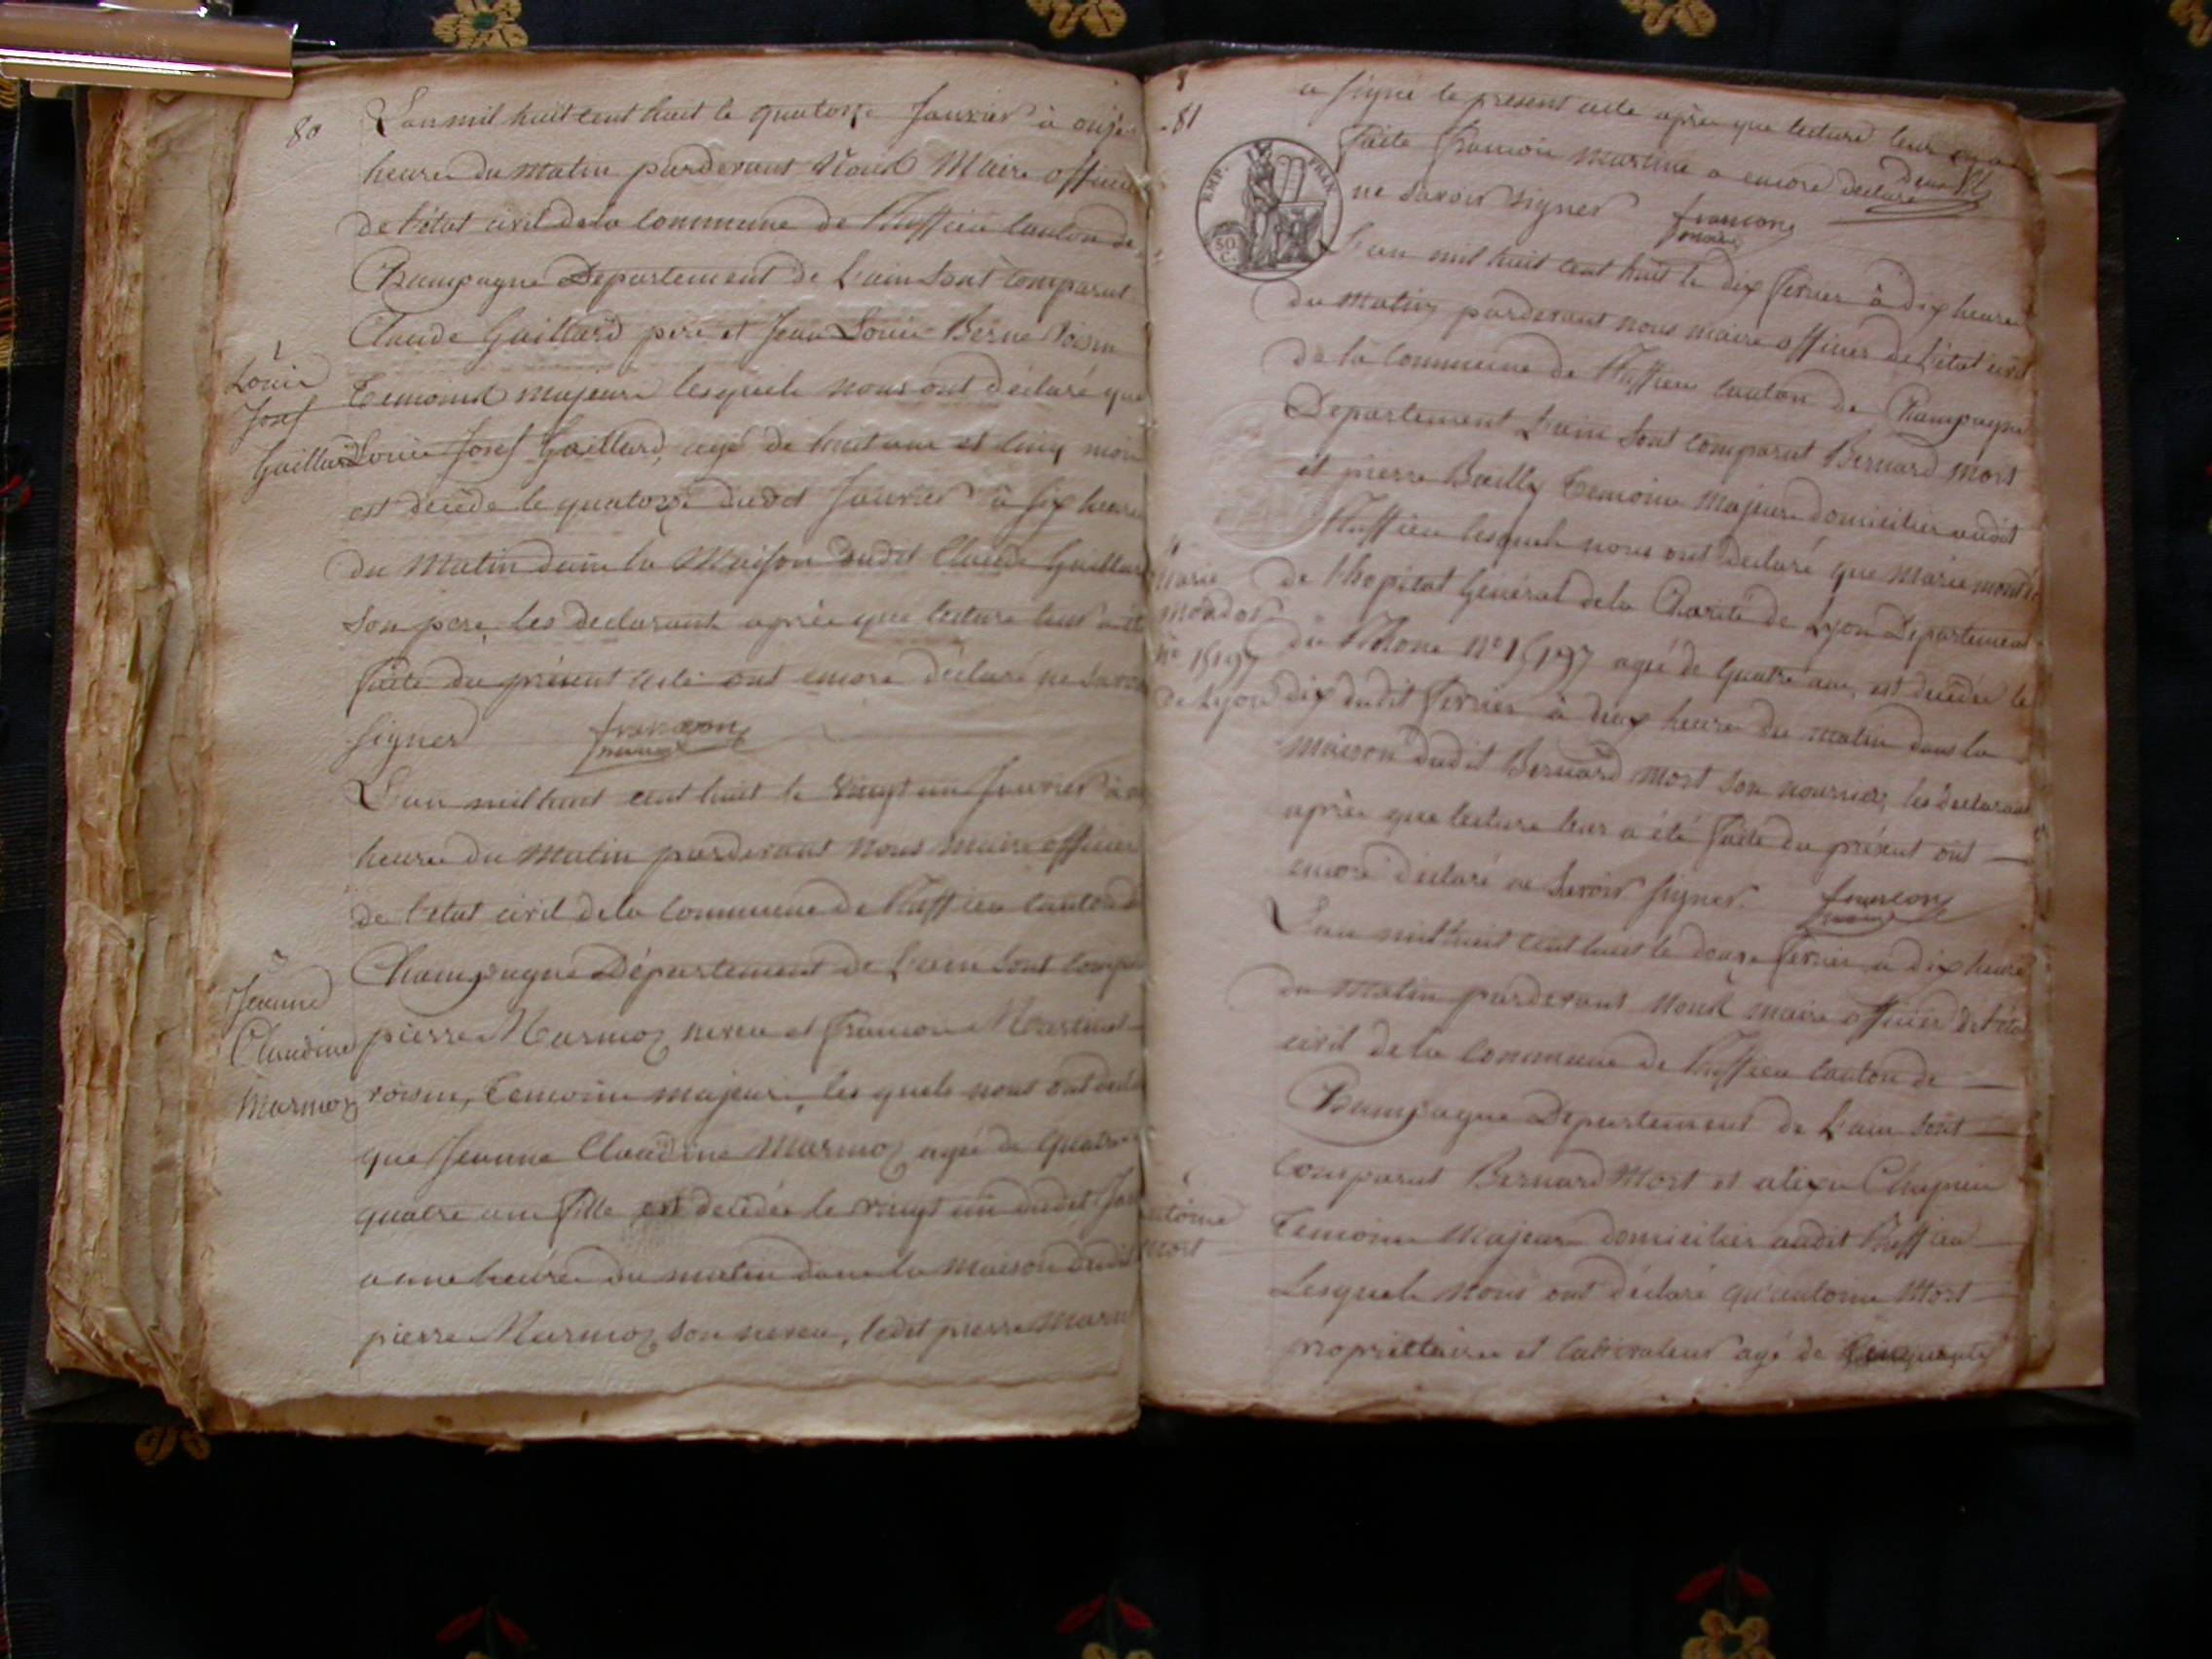 80
L'an mil huit cent huit le quatorze Janvier à onze
heures du matin pardevant Nous Maire officier
de l'état civil de la Commune de Ruffieu Canton de
Champagne Departement de L'ain sont comparut
Claude Gaillard pere et Jean Louis Berne voisin
Louis
Josef
Gaillard
Temoins majeurs lesquels nous ont déclaré que
Louis Josef Gaillard, agé de huit ans et cinq mois
est décédé le quatorze dudit Janvier à six heures
du Matin dans la Maison dudit Claude Gaillard
son pere, les declarants après que lecture leur a été
faite du présent acte ont encore déclaré ne savoir
signer francon
maire
L'an mil huit cent huit le vingt un Janvier à
heures du Matin pardevant nous maire officier
de l'état civil de la Commune de Ruffieu canton de
Champagne Département de L'ain sont compa
Jeanne
Claudine
Marmoz
pierre Marmoz neveu et francois Martinet
voisin, Temoins majeurs, les quels nous ont decla
que Jeanne Claudine Marmoz agé de quatre
quatre ans fille est decédée le vingt un dudit Jan
a une heures du matin dans la Maison dudit
pierre Marmoz son neveu, ledit pierre Marm
81
EMP. FRAN
50
C.
a signé le present acte après que lecture leur
faite francois Martine a encore declaré
ne savoir signer francon
maire
L'an mil huit cent huit le dix fevrier à dix heures
du matin pardevant nous maire officier de l'état civil
de la Commune de Ruffieu canton de Champagne
Departement L'ain sont comparut Bernard Mort
et pierre Bailly Temoins Majeurs domiciliés audit
Ruffieu lesquels nous ont declaré que Marie
Marie
n° 15197
de Lyon
de l'hopital Général de la Charité de Lyon Departement
du Rhone N° 15197 agé de quatre ans, est decedée le
dix dudit fevrier à deux heures du matin dans la
maison dudit Bernard Mort son nourricier, les declarant
après que lecture leur a été faite du présent ont
encore déclaré ne savoir signer. francon
maire
L'an mil huit cent huit le douze fevrier à dix heures
du Matin pardevant Nous maire officier de l'état
civil de la Commune de Ruffieu Canton de
Champagne Departement de L'ain sont
Comparut Bernard Mort et alexis Chapuis
ntoine
Mort
Temoins Majeurs domiciliés audit Ruffieu
Lesquels Nous ont déclaré qu'antoine Mort
propriettaires et Cultivateur agé de Cinquante